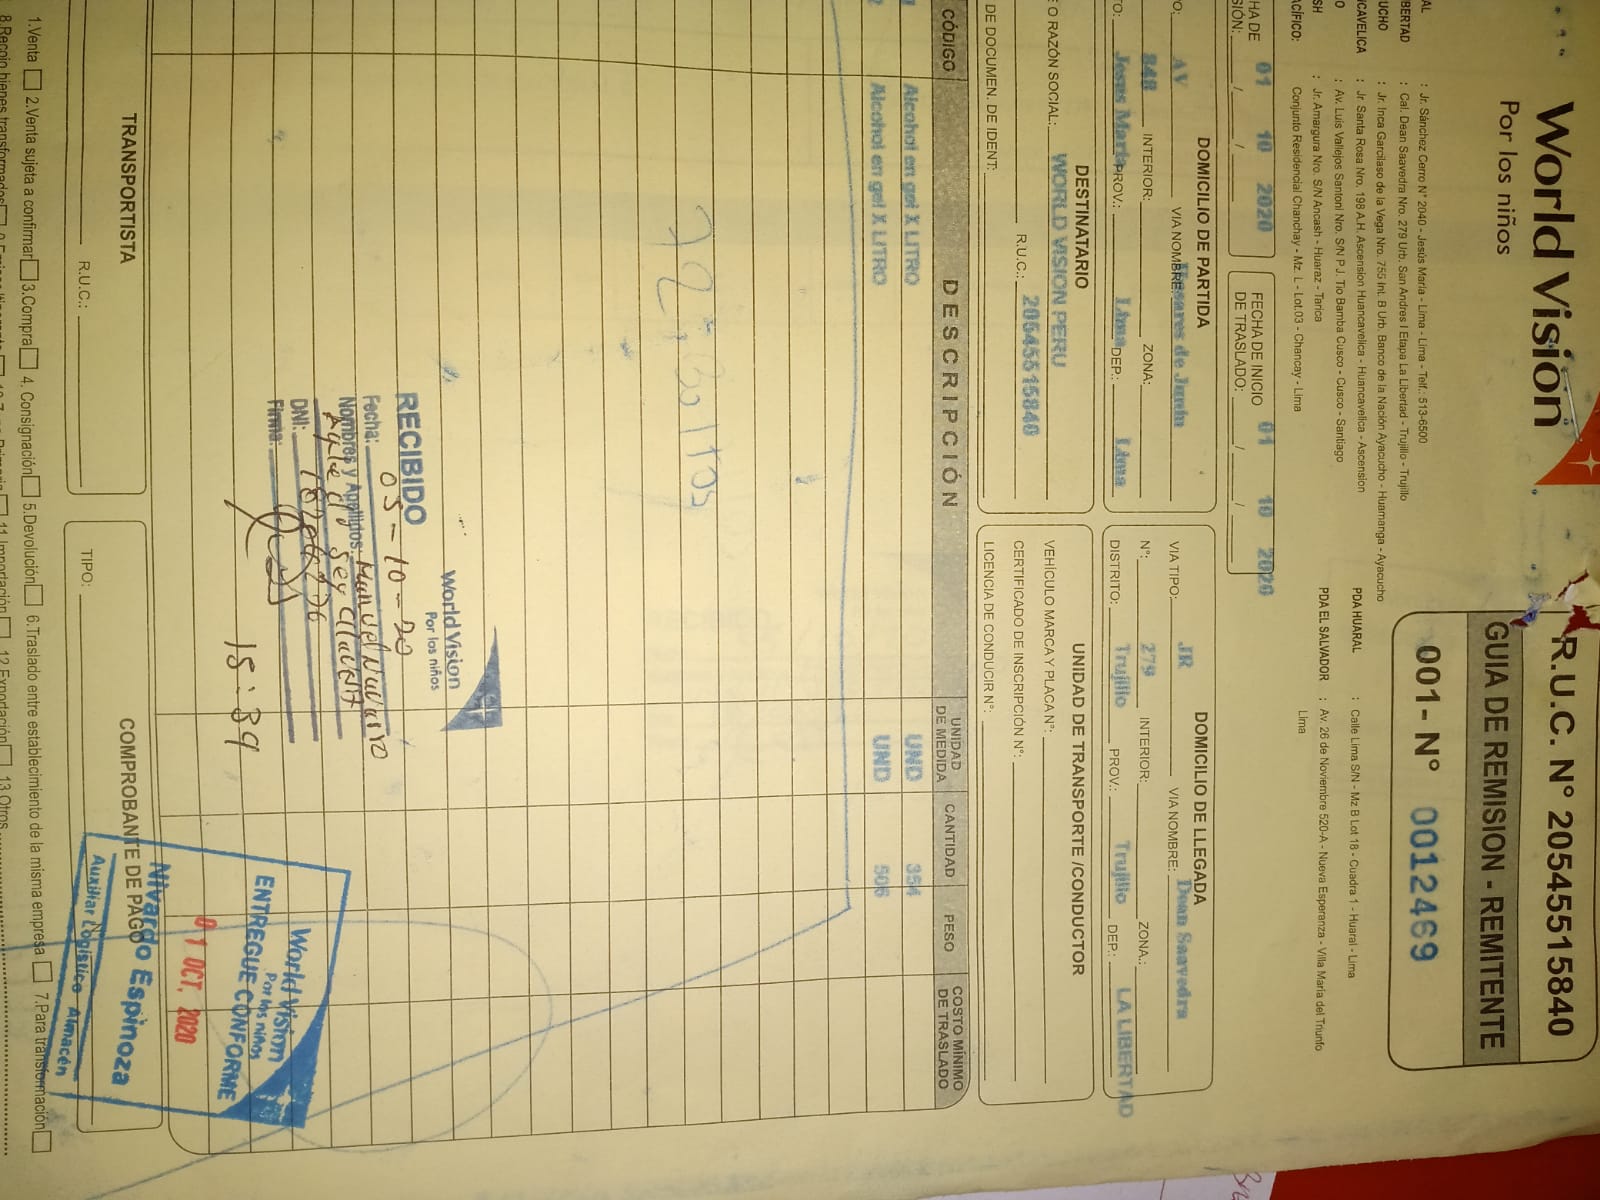 World Vision
Por los niños
R.U.C. N° 20545515840
GUIA DE REMISION - REMITENTE
001- N° 0012469
: Jr. Sánchez Cerro N° 2040 - Jesús María - Lima - Lima - Telf.: 513-6500
: Cal. Dean Saavedra Nro. 279 Urb. San Andres I Etapa La Libertad - Trujillo - Trujillo
: Jr. Inca Garcilaso de la Vega Nro. 755 Int. B Urb. Banco de la Nación Ayacucho - Huamanga - Ayacucho
: Jr. Santa Rosa Nro. 198 A.H. Ascension Huancavelica - Huancavelica - Ascension
: Av. Luis Vallejos Santoni Nro. S/N P.J. Tio Bamba Cusco - Cusco - Santiago
: Jr. Amargura Nro. S/N Ancash - Huaraz - Tarica
Conjunto Residencial Chanchay - Mz. L - Lot.03 - Chancay - Lima
PDA HUARAL : Calle Lima S/N - Mz B Lot 18 - Cuadra 1 - Huaral - Lima
PDA EL SALVADOR : Av. 26 de Noviembre 520-A - Nueva Esperanza - Villa Maria del Triunfo
Lima
01 10 2020
FECHA DE INICIO DE TRASLADO: 01 10 2020
DOMICILIO DE PARTIDA
AV VIA NOMBRE: de Junin
848 INTERIOR: ZONA:
Jesus Maria PROV.: Lima DEP.: Lima
DOMICILIO DE LLEGADA
VIA TIPO: JR VIA NOMBRE: Dean Saavedra
N°: 279 INTERIOR: ZONA.:
DISTRITO: Trujillo PROV.: Trujillo DEP.: LA LIBERTAD
DESTINATARIO
O RAZÓN SOCIAL: WORLD VISION PERU
R.U.C.: 20545515840
DE DOCUMEN. DE IDENT:
UNIDAD DE TRANSPORTE /CONDUCTOR
VEHÍCULO MARCA Y PLACA N°:
CERTIFICADO DE INSCRIPCIÓN N°:
LICENCIA DE CONDUCIR N°:
CÓDIGO DESCRIPCIÓN UNIDAD DE MEDIDA CANTIDAD PESO COSTO MÍNIMO DE TRASLADO
Alcohol en gel X LITRO UND 354
Alcohol en gel X LITRO UND 506
World Vision
Por los niños
RECIBIDO
Fecha: 05-10-20
Nombres y Apellidos: Manuel Navarro
DNI:
Firma:
15:39
World Vision
Por los niños
ENTREGUE CONFORME
01 OCT. 2020
Nivardo Espinoza
Auxiliar Logístico Almacén
TRANSPORTISTA
R.U.C.:
COMPROBANTE DE PAGO
TIPO:
1.Venta 2.Venta sujeta a confirmar 3.Compra 4. Consignación 5.Devolución 6.Traslado entre establecimiento de la misma empresa 7.Para transformación
8.Recojo bienes transformados 11.Importación 12.Exportación 13.Otros